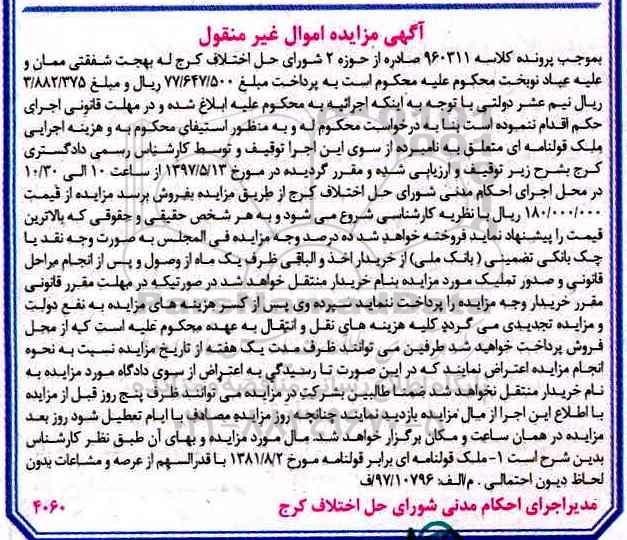 آگهی مزایده اموال غیر منقول
بموجب پرونده کلاسه ۹۶۰۳۱۱ صادره از حوزه ۲ شورای حل اختلاف کرج له بهجت شفقتی ممان و
علیه عباد نوبخت محکوم علیه محکوم است به پرداخت مبلغ ۷۷/۶۴۷/۵۰۰ ریال و مبلغ ۳/۸۸۲/۳۷۵
ریال نیم عشر دولتی با توجه به اینکه اجرائیه به محکوم علیه ابلاغ شده و در مهلت قانونی اجرای
حکم اقدام ننموده است بنا به درخواست محکوم له و به منظور استیفای محکوم به و هزینه اجرایی
ملک قولنامه ای متعلق به نامبرده از سوی این اجرا توقیف و توسط کارشناس رسمی دادگستری
کرج بشرح زیر توقیف و ارزیابی شده و مقرر گردیده در مورخ ۱۳۹۷/۵/۱۳ از ساعت ۱۰ الی ۱۰/۳۰
در محل اجرای احکام مدنی شورای حل اختلاف کرج از طریق مزایده بفروش برسد مزایده از قیمت
۱۸۰/۰۰۰/۰۰۰ ریال با نظریه کارشناسی شروع می شود و به هر شخص حقیقی و حقوقی که بالاترین
قیمت را پیشنهاد نماید فروخته خواهد شد ده درصد وجه مزایده فی المجلس به صورت وجه نقد یا
چک بانکی تضمینی ( بانک ملی) از خریدار اخذ و الباقی ظرف یک ماه از وصول و پس از انجام مراحل
قانونی و صدور تملیک مورد مزایده بنام خریدار منتقل خواهد شد در صورتیکه در مهلت مقرر قانونی
مقرر خریدار وجه مزایده را پرداخت ننماید سپرده وی پس از کسر هزینه های مزایده به نفع دولت
و مزایده تجدیدی می گردد کلیه هزینه های نقل و انتقال به عهده محکوم علیه است که از محل
فروش پرداخت خواهد شد طرفین می توانند ظرف مدت یک هفته از تاریخ مزایده نسبت به نحوه
انجام مزایده اعتراض نمایند که در این صورت تا رسیدگی به اعتراض از سوی دادگاه مورد مزایده به
نام خریدار منتقل نخواهد شد ضمنا طالبین بشرکت در مزایده می توانند ظرف پنج روز قبل از مزایده
با اطلاع این اجرا از مال مزایده بازدید نمایند چنانچه روز مزایده مصادف با ایام تعطیل شود روز بعد
مزایده در همان ساعت و مکان برگزار خواهد شد. مال مورد مزایده و بهای آن طبق نظر کارشناس
بدین شرح است ۱- ملک قولنامه ای برابر قولنامه مورخ ۱۳۸۱/۸/۲ با قدرالسهم از عرصه و مشاعات بدون
لحاظ دیون احتمالی . م/الف: ۹۷/۱۰۷۹۶/ف
مدیر اجرای احکام مدنی شورای حل اختلاف کرج
۴۰۶۰